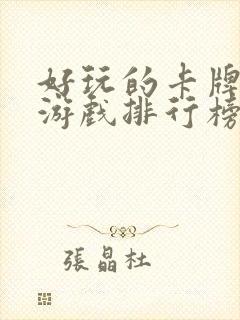 好玩的卡牌
游戏排行榜
張晶杜